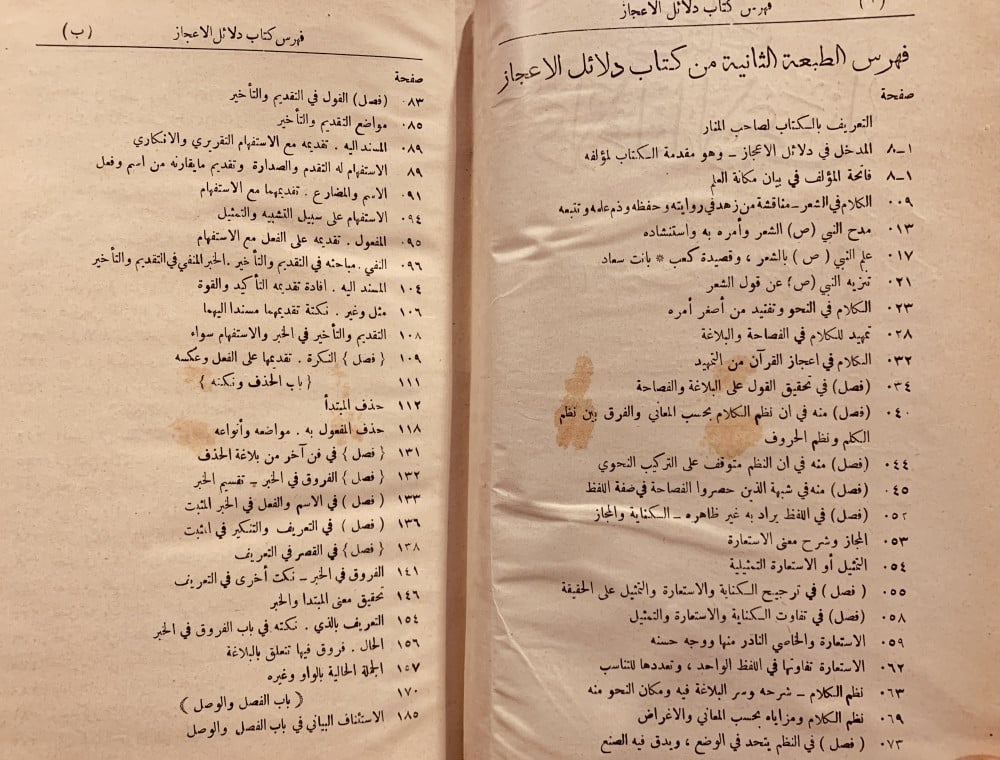 فهرس كتاب دلائل الاعجاز
فهرس الطبعة الثانية من كتاب دلائل الاعجاز
صفحة
التعريف بالكتاب لصاحب المنار
١ــ٨ المدخل في دلائل الاعجاز ــ وهو مقدمة الكتاب لمؤلفه
١ــ٨ فاتحة المؤلف في بيان مكانة العلم
٠٠٩ الكلام في الشعر ــ مناقشة من زهد في روايته وحفظه وذم علمه وتتبعه
٠١٣ مدح النبي (ص) الشعر وأمره به واستنشاده
٠١٧ علم النبي ( ص ) بالشعر ، وقصيدة كعب * بانت سعاد
٠٢١ تنزيه النبي (ص) عن قول الشعر
٠٢٣ الكلام في النحو وتفنيد من أصغر أمره
٠٢٨ تمهيد للكلام في الفصاحة والبلاغة
٠٣٢ الكلام في اعجاز القرآن من التمهيد
٠٣٤ (فصل) في تحقيق القول على البلاغة والفصاحة
٠٤٠ (فصل) منه في ان نظم الكلام بحسب المعاني والفرق بين نظم
الكلم ونظم الحروف
٠٤٤ (فصل) منه في ان النظم متوقف على التركيب النحوي
٠٤٥ (فصل) منه في شبهة الذين حصروا الفصاحة في صفة اللفظ
٠٥٢ (فصل) في اللفظ يراد به غير ظاهره ــ الكناية والمجاز
٠٥٣ المجاز وشرح معنى الاستعارة
٠٥٤ التمثيل أو الاستعارة التمثيلية
٠٥٥ ( فصل ) في ترجيح الكناية والاستعارة والتمثيل على الحقيقة
٠٥٨ (فصل) في تفاوت الكناية والاستعارة والتمثيل
٠٥٩ الاستعارة والخاصي النادر منها ووجه حسنه
٠٦٢ الاستعارة تفاوتها في اللفظ الواحد ، وتعددها للتناسب
٠٦٣ نظم الكلام ــ شرحه وسر البلاغة فيه ومكان النحو منه
٠٦٩ نظم الكلام ومزاياه بحسب المعاني والاغراض
٠٧٣ ( فصل ) في النظم يتحد في الوضع ، ويدق فيه الصنع
فهرس كتاب دلائل الاعجاز (ب)
صفحة
٠٨٣ (فصل) القول في التقديم والتأخير
٠٨٥ مواضع التقديم والتأخير
٠٨٩ المسند اليه . تقديمه مع الاستفهام التقريري والانكاري
٠٨٩ الاستفهام له التقدم والصدارة وتقديم مايقارنه من اسم وفعل
٠٩١ الاسم والمضارع . تقديمهما مع الاستفهام
٠٩٤ الاستفهام على سبيل التشبيه والتمثيل
٠٩٥ المفعول . تقديمه على الفعل مع الاستفهام
٠٩٦ النفي . مباحثه في التقديم والتأخير . الخبر المنفي في التقديم والتأخير
١٠٤ المسند اليه . افادة تقديمه التأكيد والقوة
١٠٦ مثل وغير . نكتة تقديمهما مسندا اليهما
١٠٨ التقديم والتأخير في الخبر والاستفهام سواء
١٠٩ { فصل } النكرة . تقديمها على الفعل وعكسه
١١١ { باب الحذف ونكته }
١١٢ حذف المبتدأ
١١٨ حذف المفعول به . مواضعه وأنواعه
١٣١ { فصل } في فن آخر من بلاغة الحذف
١٣٢ { فصل } الفروق في الخبر ــ تقسيم الخبر
١٣٣ ( فصل ) في الاسم والفعل في الخبر المثبت
١٣٦ ( فصل ) في التعريف والتنكير في المثبت
١٣٨ { فصل } في القصر في التعريف
١٤١ الفروق في الخبر ــ نكت أخرى في التعريف
١٤٦ تحقيق معنى المبتدا والخبر
١٥٤ التعريف بالذي . نكتته في باب الفروق في الخبر
١٥٦ الحال . فروق فيها تتعلق بالبلاغة
١٥٧ الجملة الحالية بالواو وغيره
١٧٠ ( باب الفصل والوصل )
١٨٥ الاستئناف البياني في باب الفصل والوصل